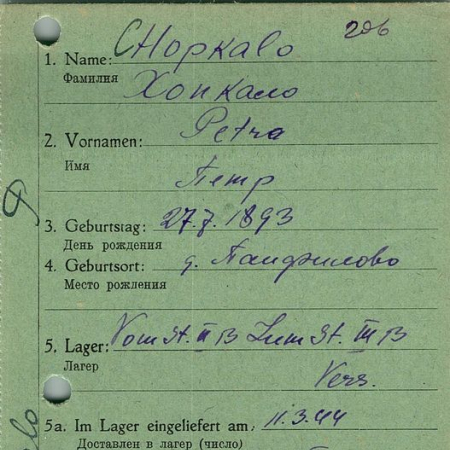 206
1. Name: Chopkalo
Фамилия
Хопкало
2. Vornamen: Petra
Имя
Петр
3. Geburtstag: 27.7.1893
День рождения
4. Geburtsort: д. Панфилово
Место рождения
5. Lager: Vom St. II B Zum St. III B
Лагер
Vers.
5a. Im Lager eingeliefert am: 11.3.44
Доставлен в лагер (число)